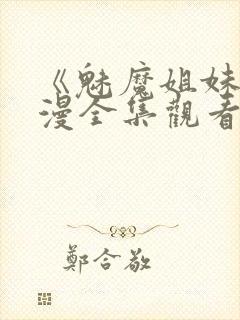 《魅魔姐妹
漫全集觀看
鄭合敬